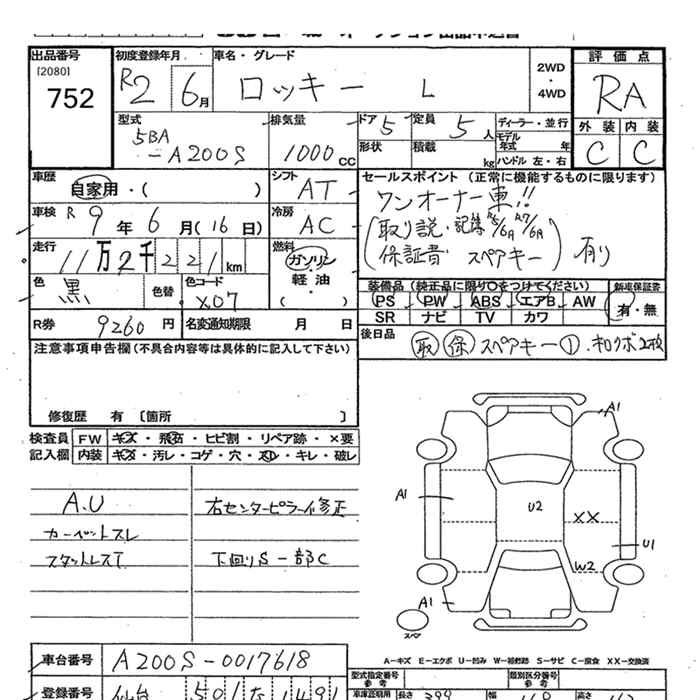 出品番号 初度登録年月 車名・グレード 評価点
[2080]
752 R2 6月 ロッキー L 2WD・4WD RA
型式 排気量 ドア 5 定員 5人 ディーラー・並行 外装 内装
5BA
-A200S 1000cc 形状 積載 kg モデル年式 年式 ハンドル 左・右 C C
車歴 自家用・( ) シフト AT セールスポイント(正常に機能するものに限ります)
車検 R9年6月(16日) 冷房 AC ワンオーナー車!!
(取り説・記簿 R5/6月 R7/6月
保証書 スペアキー) 有り
走行 11万2千221km 燃料 ガソリン・軽油・( )
色 黒 色替 色コード X07 装備品(純正品に限り〇をつけてください) 新車保証書
PS PW ABS エアB AW 有・無
SR ナビ TV カワ
R券 9260円 名変通知期限 月 日 後日品
取 保 スペアキー①
注意事項申告欄(不具合内容等は具体的に記入して下さい)
修復歴 有〔箇所 〕
検査員 FW キズ・飛石・ヒビ割・リペア跡・×要
記入欄 内装 キズ・汚レ・コゲ・穴・スレ・キレ・破レ
A1
A.U 右センターピラー修正
A1 U2 XX
カーペットスレ
U1
スタットレスT 下回りS一部C
W2
A1
スペア
車台番号 A200S-0017618
A-キズ E-エクボ U-凹み W-補修跡 S-サビ C-腐食 XX-交換済
型式指定番号 類別区分番号
参考 参考
登録番号 仙台 501 1491 車庫証明用 長さ 399 幅 高さ